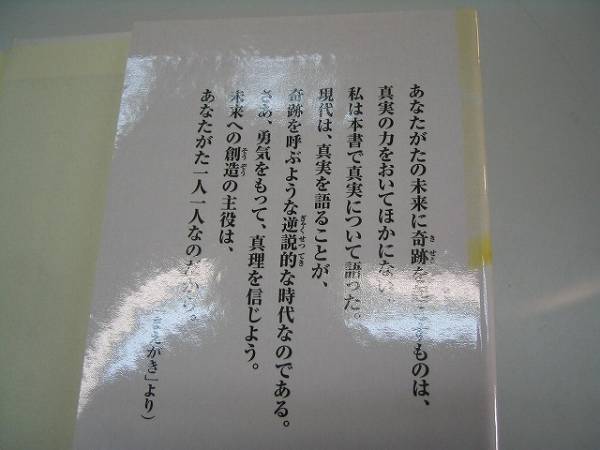 あなたがたの未来に奇跡を　ものは、
真実の力をおいてほかにない。
私は本書で真実について語った。
現代は、真実を語ることが、
奇跡を呼ぶような逆説的な時代なのである。
さあ、勇気をもって、真理を信じよう。
未来への創造の主役は、
あなたがた一人一人なのだから。
えがき」より）